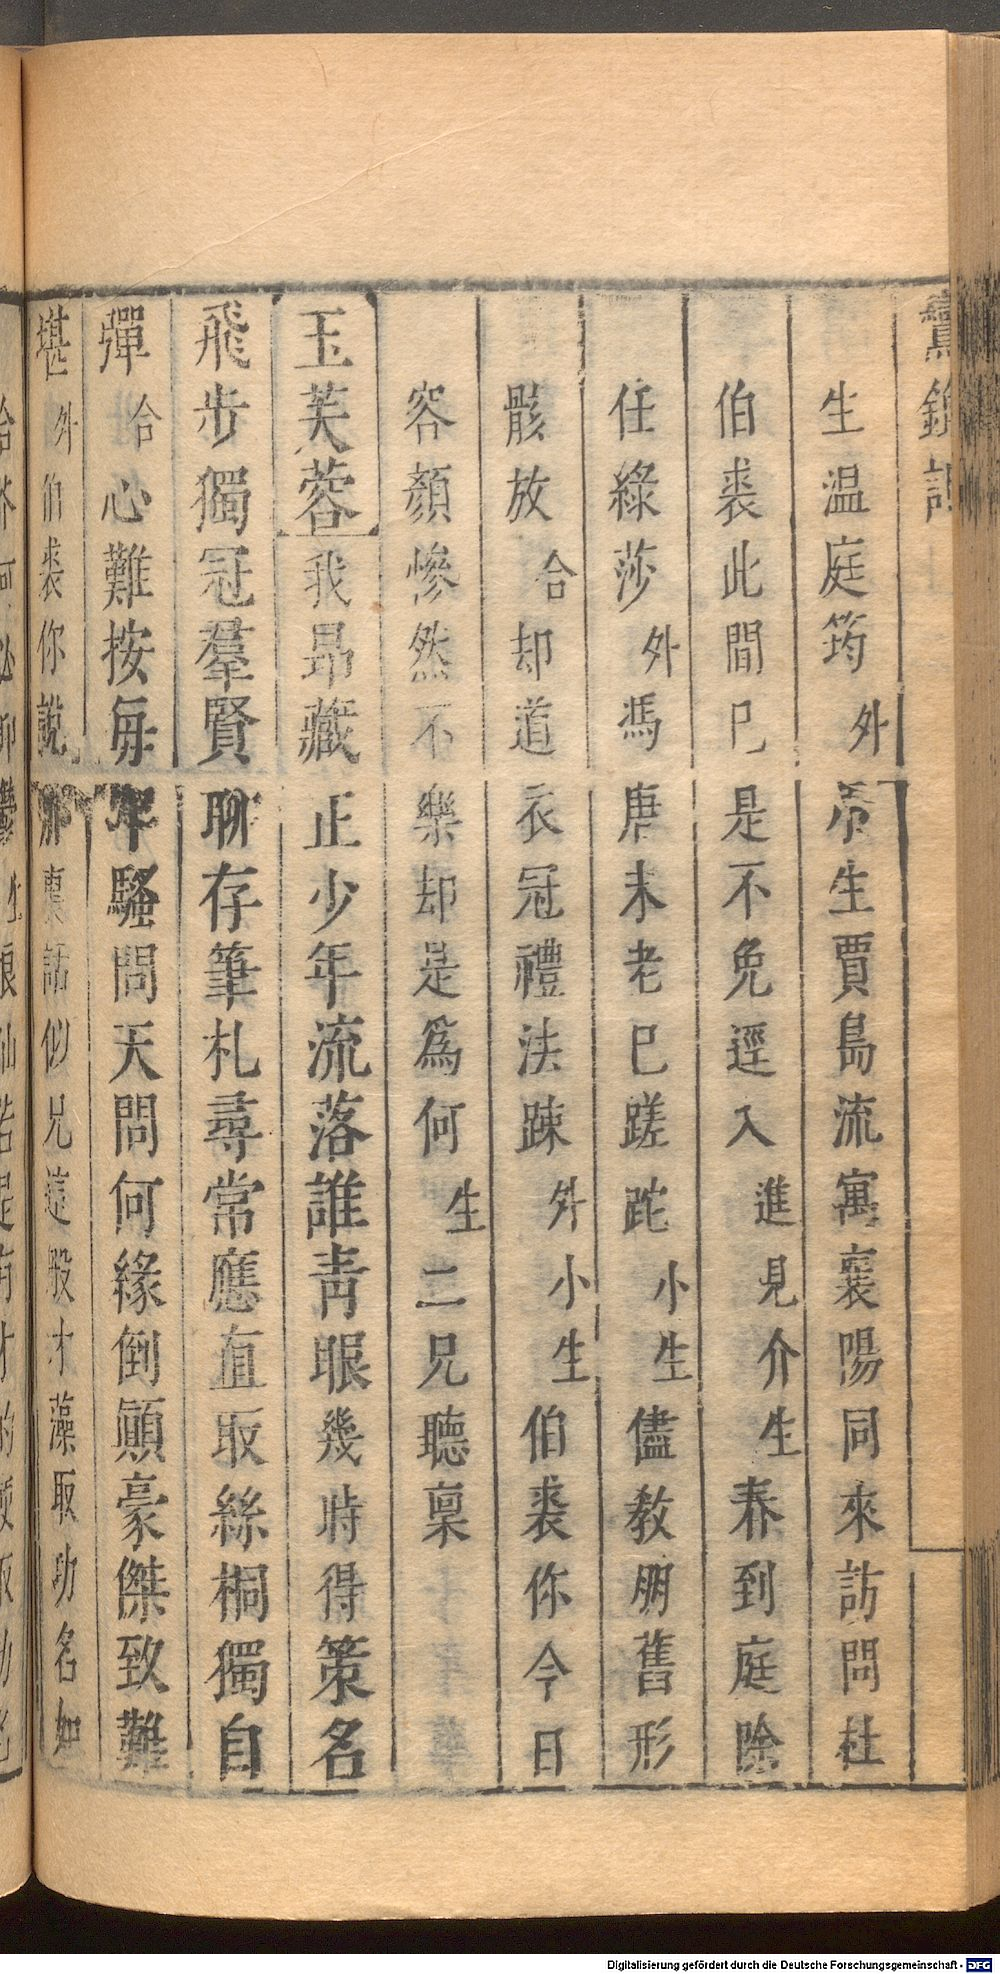 鸞鎞記
生温庭筠外帛生賈島流寓襄陽同來訪問杜
伯裘此間已是不免逕入進見介生春到庭除
任綠莎外馮唐未老已蹉跎小生儘教朋舊形
骸放合却道衣冠禮法踈外小生伯裘你今日
容顏慘然不樂却是為何生二兄聽稟
玉芙蓉我昂藏正少年流落誰靑眼幾時得策名
飛步獨冠羣賢聊存筆札尋常應直取絲桐獨自
彈合心難按每年騷問天問何緣倒顛豪傑致難
堪外伯裘你說那裏話似兄這般才藻取功名如
Digitalisierung gefördert durch die Deutsche Forschungsgemeinschaft - DFG